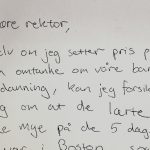 ære rektor,
lv om jeg setter pris p
n omtanke om våre bar
danning, kan jeg forsik
g om at de lærte
e mye på de 5 dage
var i Boston so